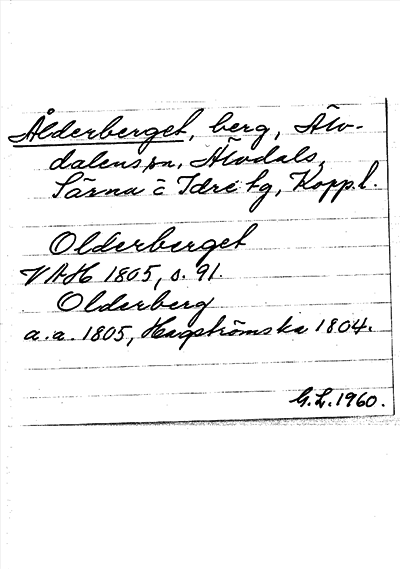 Ålderberget, berg, Älv-
dalens sn, Älvdals,
Särna o Idre tg, Kopp.l.
Olderberget
VAH 1805, s. 91.
Olderberg
a.a. 1805, Hagströmska 1804.
G.L. 1960.